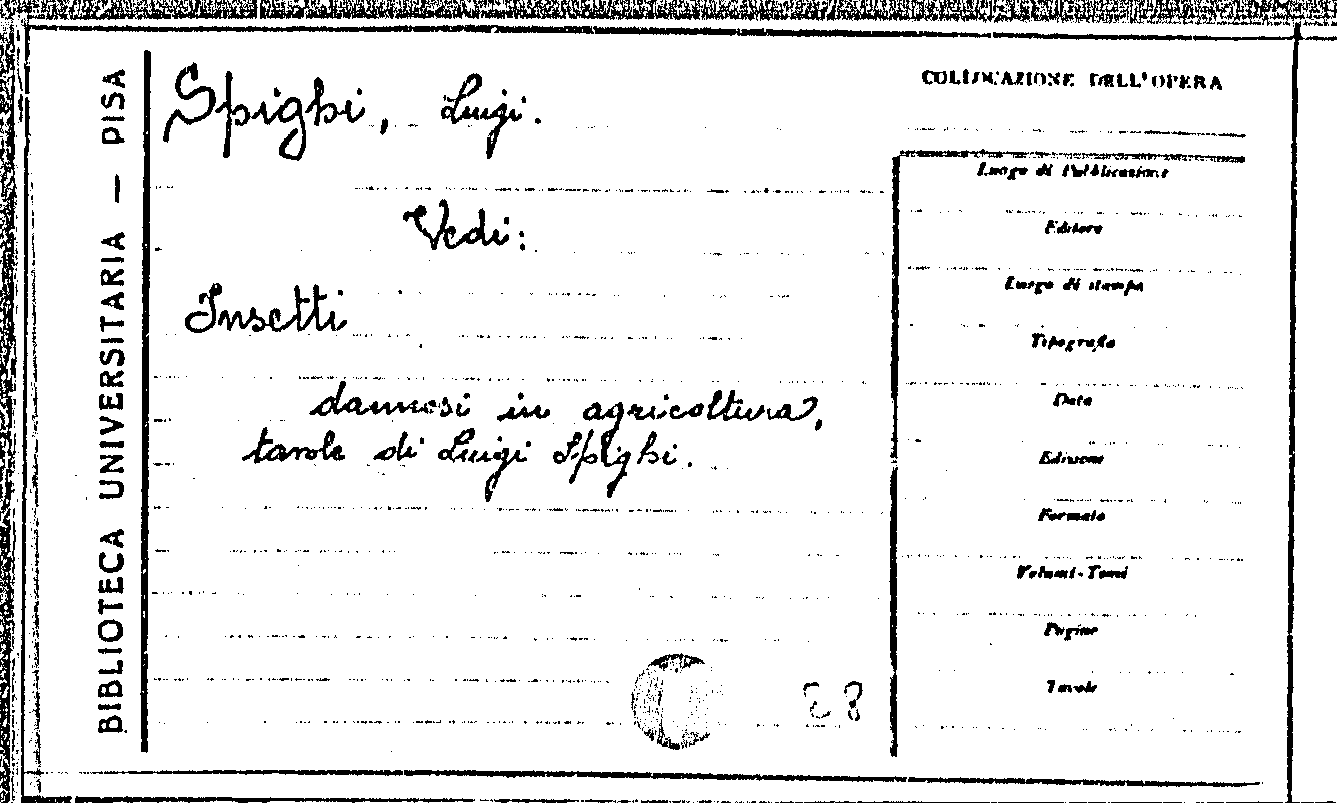 BIBLIOTECA UNIVERSITARIA — PISA
Spighi, Luigi.
Vedi:
Insetti
dannosi in agricoltura,
tavole di Luigi Spighi.
COLLOCAZIONE DELL'OPERA
Luogo di Pubblicazione
Editore
Luogo di stampa
Tipografia
Data
Edizione
Formato
Volumi-Tomi
Pagine
Tavole